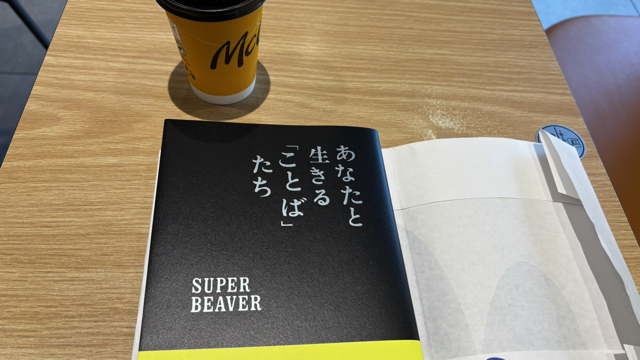 あなたと
生きる
「ことば」
たち
SUPER
BEAVER
Mc